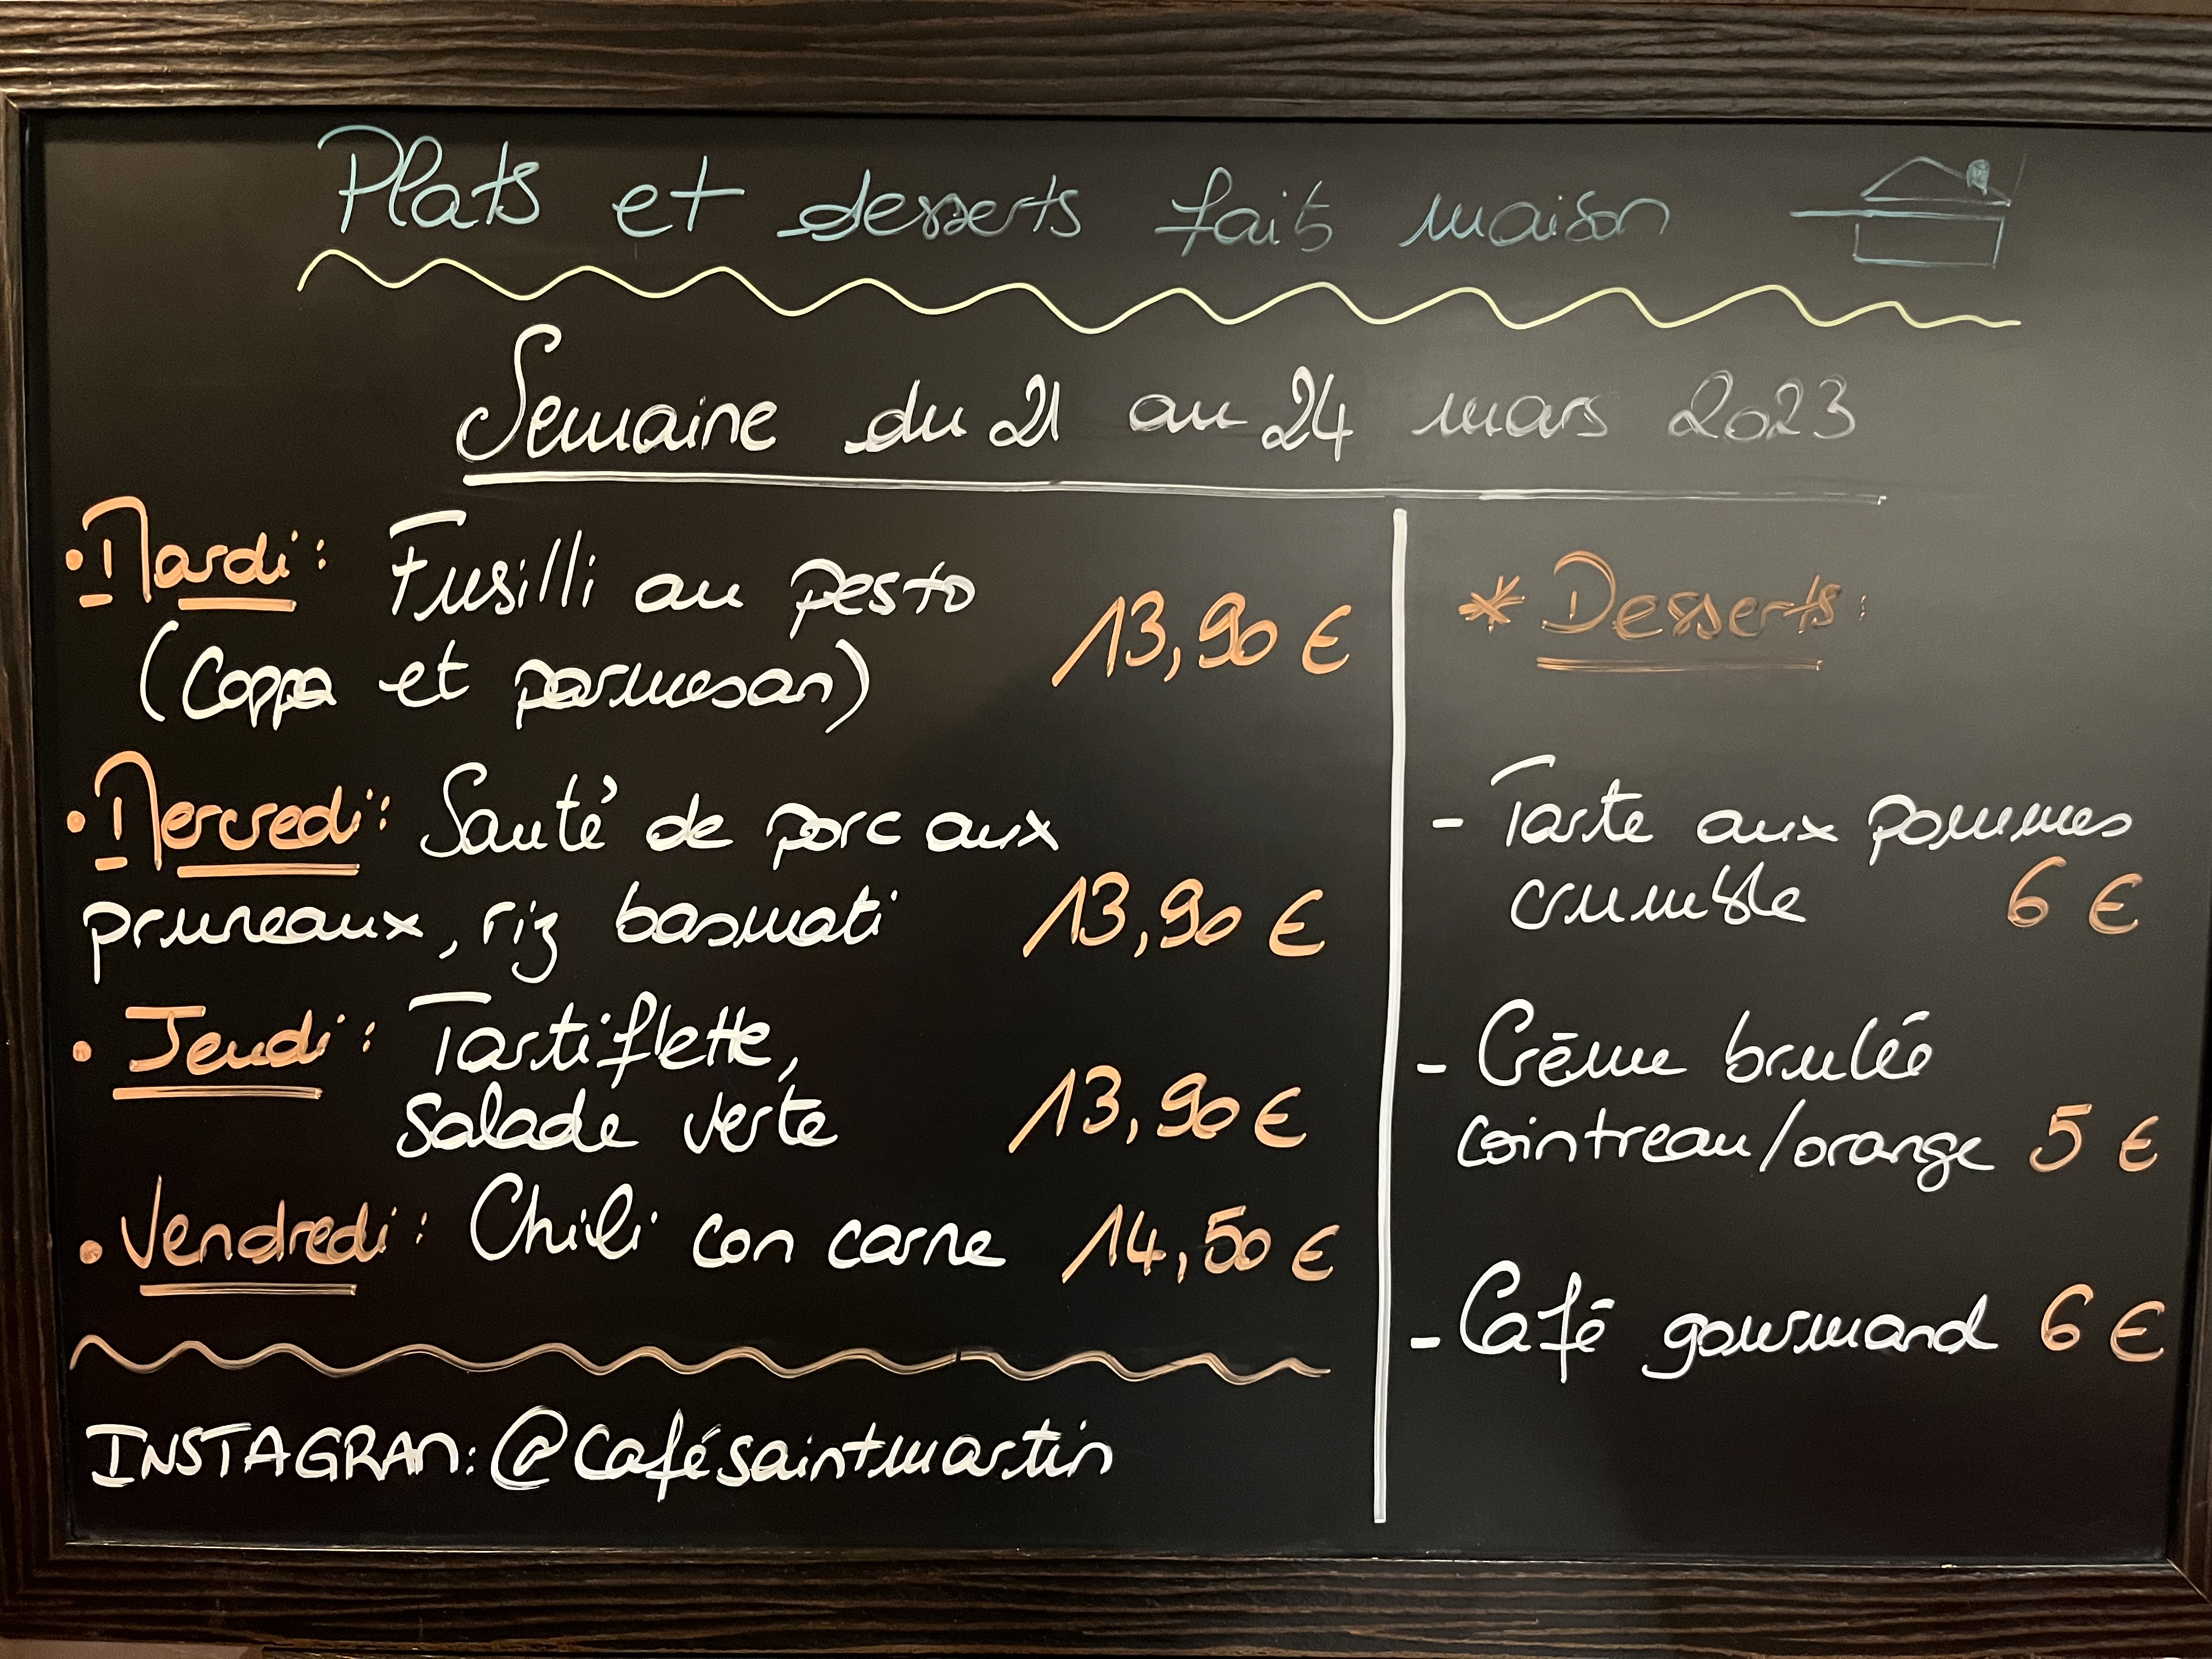 Plats et desserts faits maison
Semaine du 21 au 24 mars 2023
• Mardi : Fusilli au pesto
(Coppa et parmesan) 13,90 €
• Mercredi : Sauté de porc aux
pruneaux, riz basmati 13,90 €
• Jeudi : Tartiflette,
salade verte 13,90 €
• Vendredi : Chili con carne 14,50 €
INSTAGRAM: @cafésaintmartin
* Desserts :
- Tarte aux pommes
crumble 6 €
- Crème brulée
cointreau/orange 5 €
- Café gourmand 6 €